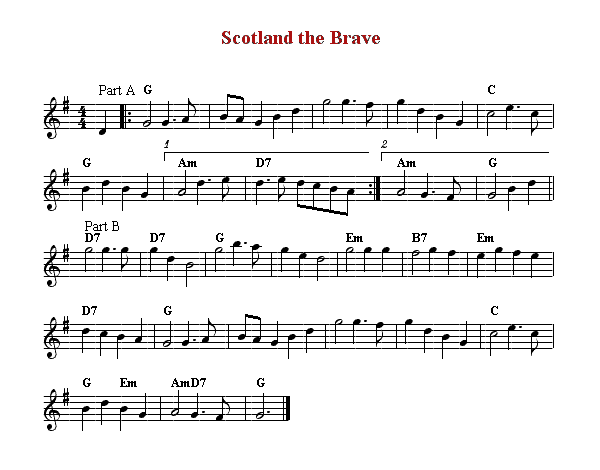 Scotland the Brave
Part A G C
4
4
1 2
G Am D7 Am G
Part B
D7 D7 G Em B7 Em
D7 G C
G Em Am D7 G